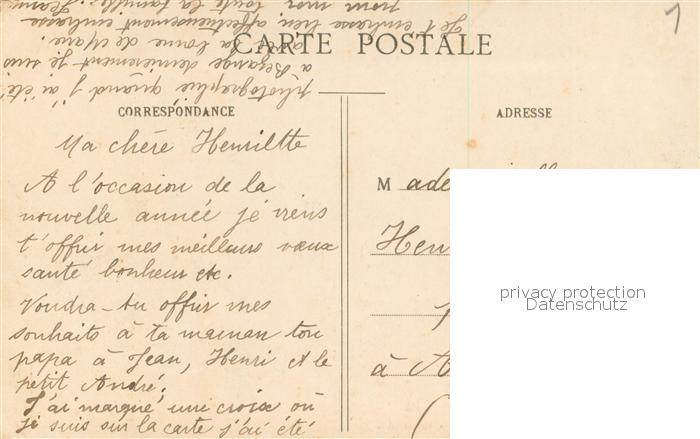 1
CARTE POSTALE
CORRESPONDANCE
Ma chère Henriltte
A l'occasion de la
nouvelle année je viens
t'offrir mes meilleurs vœux
santé bonheur etc.
Voudra-tu offrir mes
souhaits à ta maman ton
papa à Jean, Henri et le
petit André.
J'ai marqué une croix où
je suis sur la carte j'ai été
photographie quand j'ai été
à Bezange dernierement je suis
avec la bonne de Marie.
Je t'embrasse bien affectueusement embrasse
pour moi toute la famille.
ADRESSE
M ade
Hen
à A
privacy protection
Datenschutz